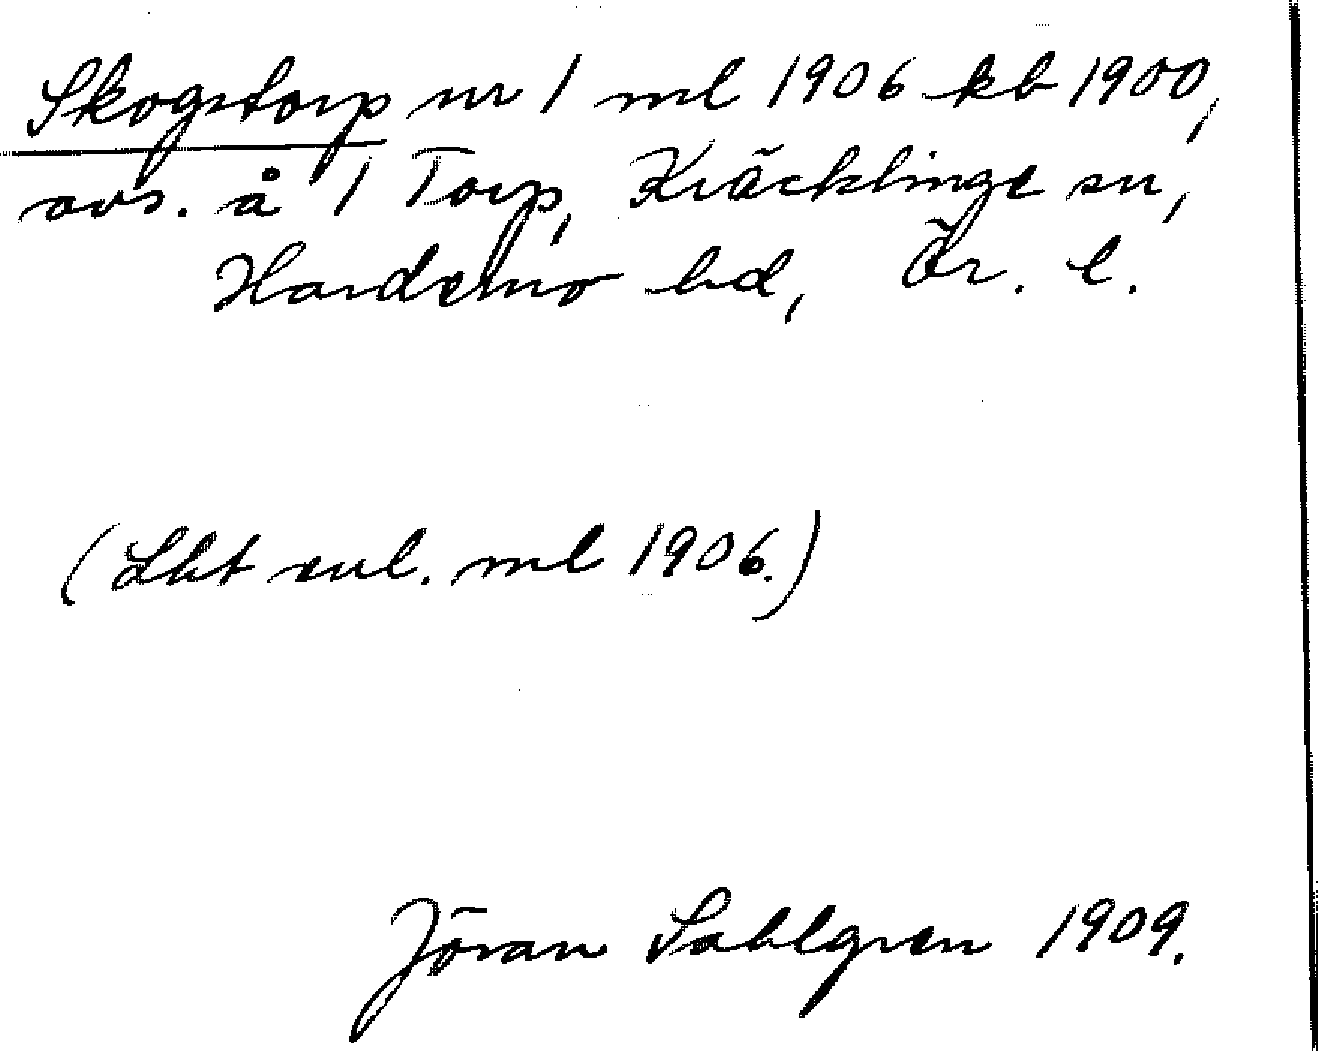 Skogstorp nr 1 ml 1906 kb 1900,
avs. å 1 Torp, Kräcklinge sn,
Hardemo hd, Ör. l.
(Lht enl. ml 1906.)
Jöran Sahlgren 1909.